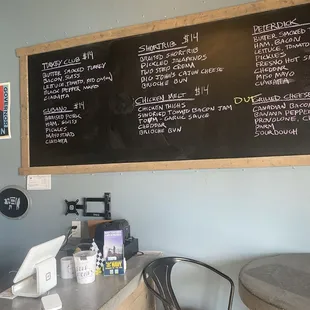 TURKEY CLUB $14
BUTTER SMOKED TURKEY
BACON, SWISS
LETTUCE, TOMATO, RED ONION
BLACK PEPPER MAYO
CIABATTA
CUBANO $14
BRAISED PORK
HAM, SWISS
PICKLES
MAYO STARD
CIABATTA
SHORTRIB $14
BRAISED SHORTRIB
PICKLED JALAPENOS
TWO STEP CREMA
BIG JOHN'S CAJUN CHEESE
BRIOCHE BUN
CHICKEN MELT $14
CHICKEN THIGHS
SUNDRIED TOMATO BACON JAM
TOUM - GARLIC SAUCE
CHEDDAR
BRIOCHE BUN
PETERDICK
BUTTER SMOKED
HAM, BACON
LETTUCE, TOMATO
PICKLES
FRESNO HOT
CHEDDAR
MISO MAYO
CIABATTA
GRILLED CHEESE
CANADIAN BACON
BANANA PEPPER
PROVOLONE,
JAM
SOURDOUGH